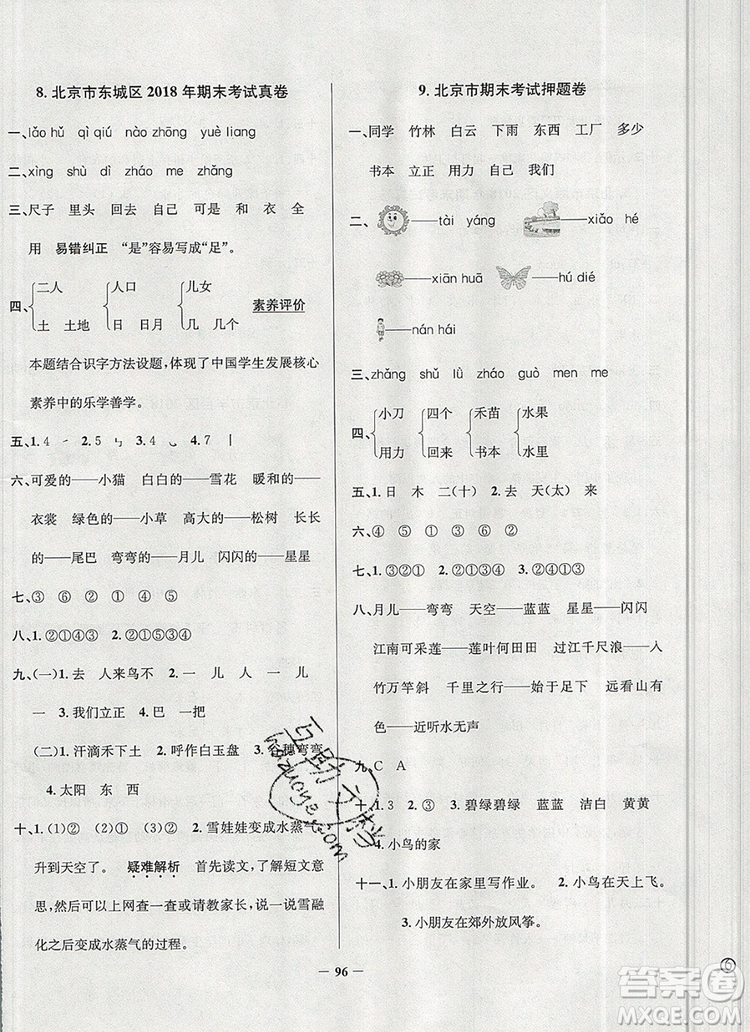 8. 北京市东城区 2018 年期末考试真卷
一、lǎo hǔ qì qiú nào zhōng yuè liang
二、xìng shù dì zháo me zhǎng
三、尺子 里头 回去 自己 可是 和 衣 全
用 易错纠正 “是”容易写成“足”。
四、
二人 人口 儿女
土 土地 日 日月 几 几个
素养评价
本题结合识字方法设题，体现了中国学生发展核心
素养中的乐学善学。
五、1.4 ㇀ 2.5 ㇉ 3.4 ㇏ 4.7 丨
六、可爱的——小猫 白白的——雪花 暖和的——
衣裳 绿色的——小草 高大的——松树 长长
的——尾巴 弯弯的——月儿 闪闪的——星星
七、③ ⑥ ② ① ④ ⑤
八、1.②①④③ 2.①②⑤③④
九、(一)1.去 人来鸟不 2.一 儿 一 儿
一 3.我们立正 4.巴 一把
(二)1.汗滴禾下土 2.呼作白玉盘 3.谷穗弯弯
4.太阳 东 西
十、1.(1)② (2)① (3)② 2.雪娃娃变成水蒸气
升到天空了。 疑难解析 首先读文，了解短文意
思，可以上网查一查或请教家长，说一说雪融
化之后变成水蒸气的过程。
9. 北京市期末考试押题卷
一、同学 竹林 白云 下雨 东西 工厂 多少
书本 立正 用力 自己 我们
二、——tài yáng ——xiǎo hé
——xiān huā ——hú dié
——nán hái
三、zhǎng shǔ lǜ zháo guò men me
四、
小刀 四个 禾苗 水果
用力 回去 书本 里面
五、1.日 木 二(十) 2.去 天(太) 来
六、④ ⑤ ① ③ ⑥ ②
七、1.③②① 2.②①③ 3.①③②
八、月儿——弯弯 天空——蓝蓝 星星——闪闪
江南可采莲——莲叶何田田 过江千尺浪——入
竹万竿斜 千里之行——始于足下 远看山有
色——近听水无声
九、C A
十、1.3 2.① ③ 3.碧绿碧绿 蓝蓝 洁白 黄黄
4.小鸟的家
十一、1.小朋友在家里写作业。 2.小鸟在天上飞。
3.小朋友在郊外放风筝。
— 96 —
⑥
互助文档
huzuoye.com
答案圈
MXQE.COM